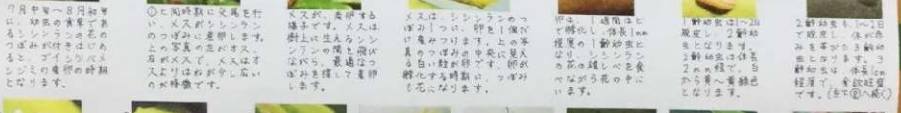 7月中旬〜8月初旬
に、幼虫の食草であ
るシシンランの花の
つぼみが付きはじめ
ると、ゴイシツバメ
シジミの産卵の時期
となります。
①と同時期に交尾を行
い、メスがシシンラン
のつぼみに産卵します。
上の写真の左がオス、
右がメスで、メスはオ
スよりはねが少し広い
のが特徴です。
メスが、産卵する
様子です。メスは
樹上に生えるシシン
ランの間を飛び
ながら、最適なつ
ぼみを探して産卵
します。
メスは、シシンランのつ
ぼみ1つに、卵を1個だ
け産みつけます。上の写
真のつぼみの中央に見え
る白い粒が卵です。卵が
孵化する時期に、つぼみ
も花になります。
卵は、1週間ほど
で孵化し、体長1mm
程度の1齢幼虫と
なり、シシンラン
の花の雄しべを食
べながら花の中に
います。
1齢幼虫は1〜2日
で脱皮し、2齢幼
虫となります。
2齢幼虫は体長
2mm程で、白
から黄〜黄緑色
となります。
2齢幼虫も、1〜2日
で脱皮し、体が赤
みを帯びた3齢幼
虫となります。3
齢幼虫は、体長1cm
程度で、
です。(左下⑧へ続く)